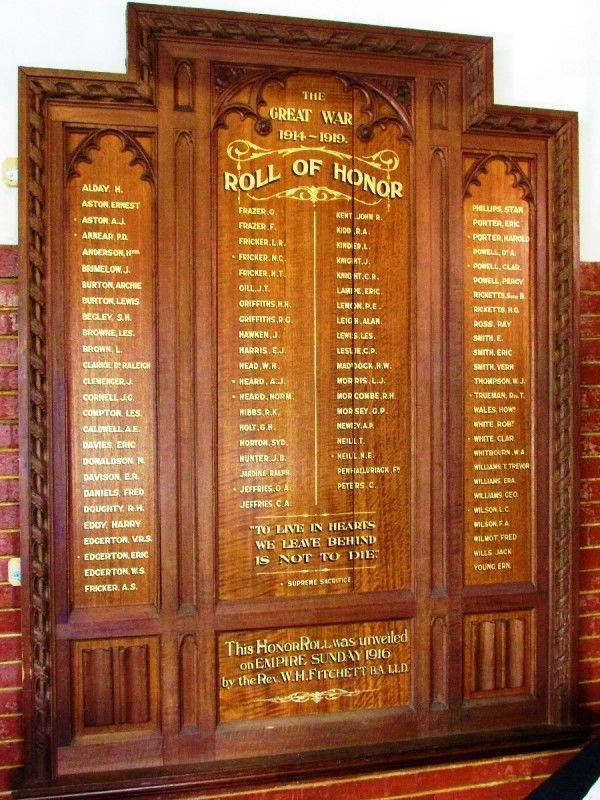 THE
GREAT WAR
1914~1919.
ROLL OF HONOR
ALDAY. H.
ASTON. ERNEST
• ASTON. A.J.
• ANNEAR. P.D.
ANDERSON. Hᴱᴿᴮ
BRIMELOW. J.
BURTON. ARCHIE
BURTON. LEWIS
BEGLEY. S.H.
BROWNE. LES.
BROWN. L.
CLARKE. Dᴿ RALEIGH
CLEMENGER. J.
CORNELL. J.C.
COMPTON. LES.
CALDWELL. A.E.
DAVIES. ERIC
DONALDSON. N.
DAVISON. E.R.
DANIELS. FRED
DOUGHTY. R.H.
EDDY. HARRY
EDGERTON. V.R.S.
• EDGERTON. ERIC
EDGERTON. W.S.
FRICKER. A.S.
FRAZER. G.
FRAZER. F.
FRICKER. L.R.
• FRICKER. N.C.
FRICKER. N.T.
GILL. J.T.
GRIFFITHS. H.H.
GRIFFITHS. R.G.
HAWKEN. J.
HARRIS. E.J.
HEAD. W.H.
• HEARD. A.J.
• HEARD. NORM.
HIBBS. R.K.
HOLT. G.H.
HORTON. SYD.
HUNTER. J.B.
JARDINE. RALPH.
• JEFFRIES. O.A.
JEFFRIES. C.A.
KENT. JOHN R.
KIDD. R.A.
KINDER. L.
KNIGHT. J.
KNIGHT. C.R.
LAMPE. ERIC.
LEMON. P.E.
LEIGH. ALAN.
LEWIS. LES.
LESLIE. C.P.
MADDOCK. H.W.
MORRIS. L.J.
MORCOMBE. R.H.
MORSEY. G.P.
NEWEY. A.P.
NEILL. T.
• NEILL. N.E.
PENHALLURIACK. Fᴷ
PETERS. C.
PHILLIPS. STAN
PORTER. ERIC
• PORTER. HAROLD
POWELL. Dᴿ A.
• POWELL. CLAR.
POWELL. PERCY
RICKETTS. B.
RICKETTS. H.G.
ROSS. RAY
SMITH. E.
SMITH. ERIC
SMITH. VERN
THOMPSON. W.J.
• TRUEMAN. T.
WALES. HOWᴰ
WHITE. ROBᵀ
• WHITE. CLAR
WHITBOURN. W.A.
WILLIAMS. T. TREVOR
WILLIAMS. ERA.
WILLIAMS. GEO.
WILSON. L.C.
WILSON. F.A.
WILMOT. FRED
WILLS. JACK
YOUNG. ERN.
"TO LIVE IN HEARTS
WE LEAVE BEHIND
IS NOT TO DIE."
• SUPREME SACRIFICE.
This HONOR ROLL was unveiled
on EMPIRE SUNDAY 1916
by the Rev. W.H. FITCHETT B.A. L.L.D.